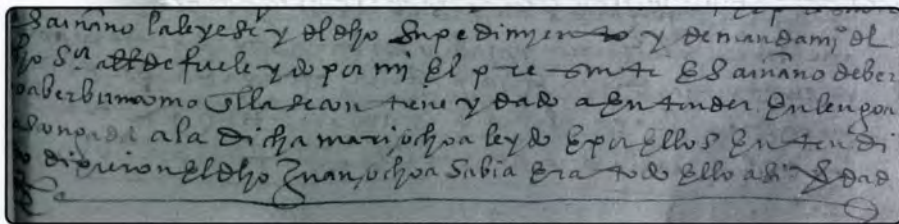 escriuano la leyese y el dho su pedimiento y de mandamio del
dho Sr allde fue leydo por mi el presente escriuano de ber
bo ad berbum como en ella se contiene y dado a entender en lengoa
bascongada a la dicha mari ochoa leydo e por ellos entendi
do dixieron el dho Juan ochoa sabia era todo ello asi berdad